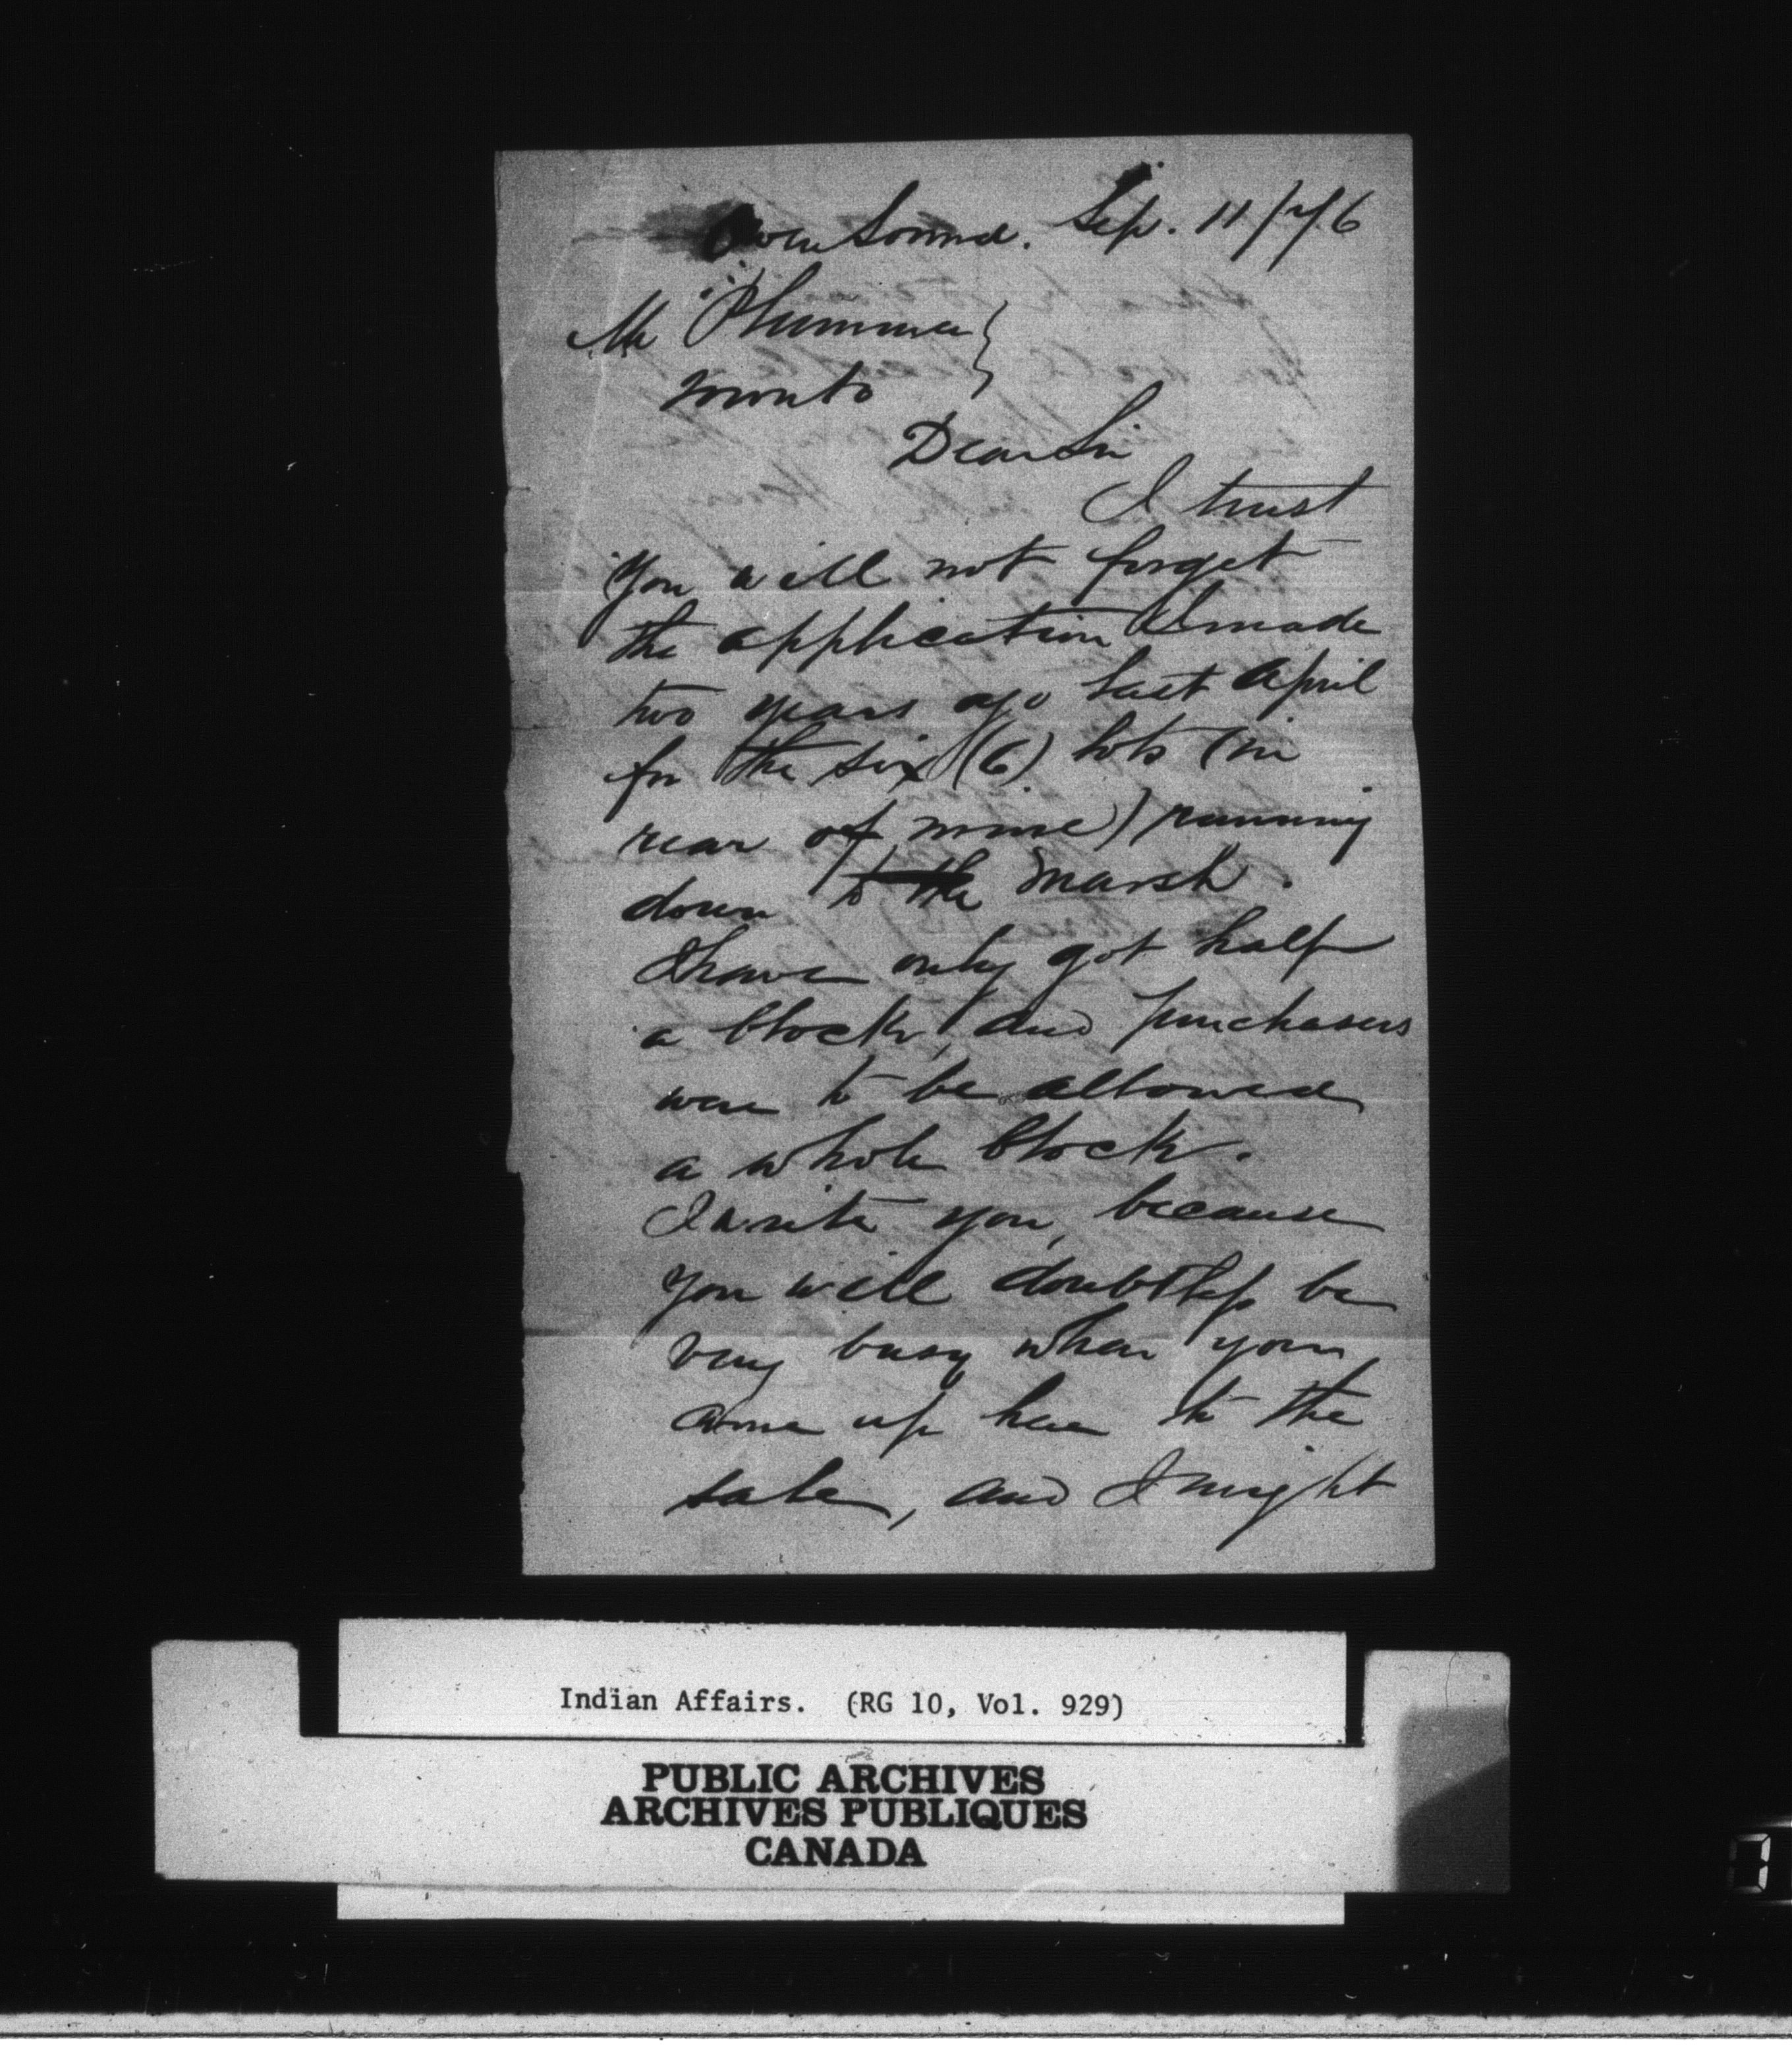 Owen Sound. Sep. 11/76
Mr Plummer
Toronto
Dear Sir
I trust
you will not forget
the application I made
two years ago last April
for the six (6) lots (in
rear of mine) running
down to the Marsh.
I have only got half
a block, and purchasers
were to be allowed
a whole block.
I write you, because
you will doubtless be
very busy when you
come up here to the
sale, and I might
Indian Affairs. (RG 10, Vol. 929)
PUBLIC ARCHIVES
ARCHIVES PUBLIQUES
CANADA